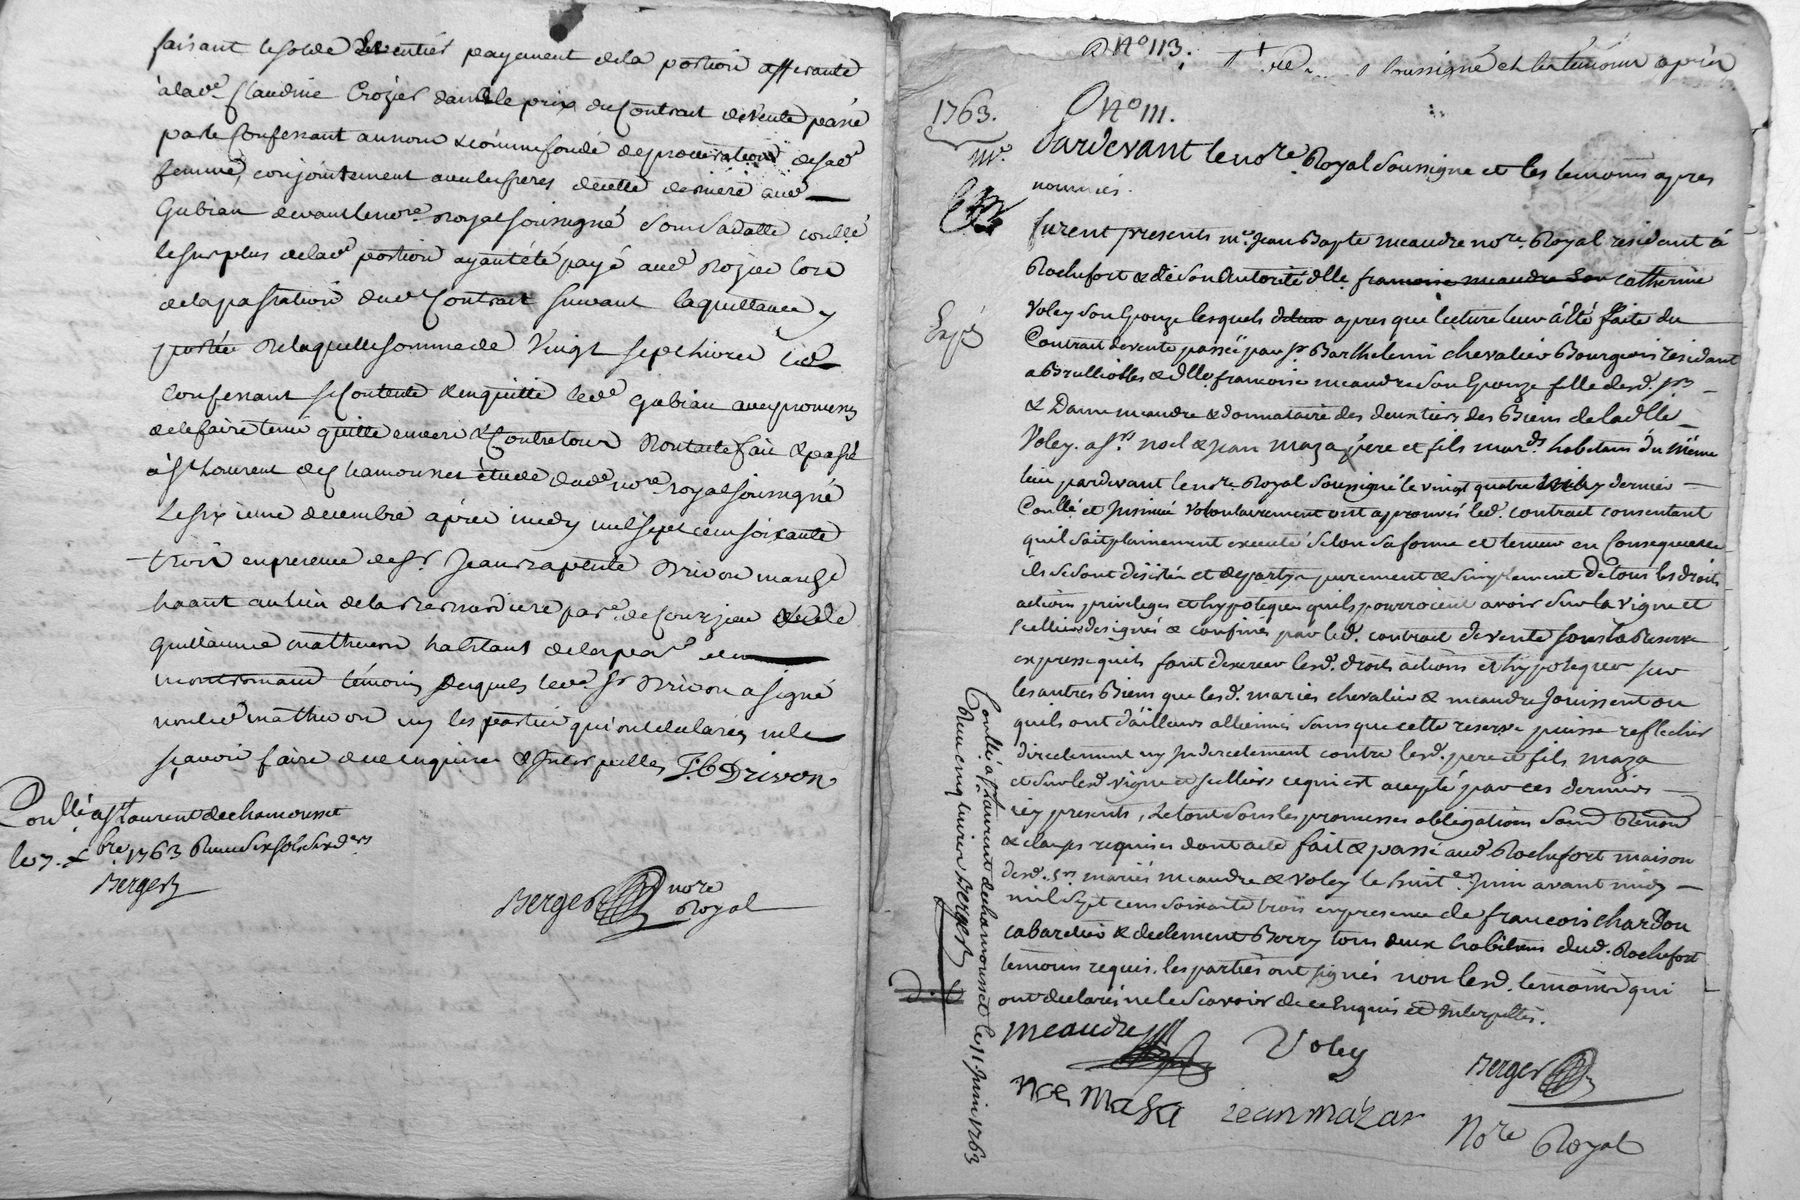 faisant le solde & entier payement de la portion afferante
à lad.e Claudine Crozier dans le prix du Contrat de vente passé
par le Confessant au nom & comme fondé de procuration de sad.e
femme, conjointement avec les freres de cette derniere aud.
Gubian devant le no.re Royal soussigné sous sa datte conllé
le surplus de lad.e portion ayant été payé aud. Rozier lors
de la passation dud. Contrat suivant la quittance y
portée de laquelle somme de vingt sept livres led.
Confessant se Contente & en quitte led. Gubian avec promesse
de le faire tenir quitte envers & Contre tous Dont acte fait & passé
à St Laurent de Chamousset étude dud. no.re royal soussigné
Le six ieme decembre après midy mil sept cent soixante
trois en presence de Sr. Jean Baptiste Drivon march.d
au lieu de la Bernardiere par.e de Courzieu & de
Guillaume Matheron habitant de la par.e de
montromand témoins desquels led. Sr Drivon a signé
non led. matheron ny les parties qui ont declaré ne le
sçavoir faire de ce enquises & interpellés J.B Drivon
Conllé à St Laurent de chamousset
le 7. xbre. 1763 Reçu six sols six d.ers
Berger
Berger no.re
Royal
N.o 113.
soussigné et les temoins après
1763.
N.o 111.
Pardevant le no.re Royal soussigné et les temoins apres
nommés.
furent presents m.e Jean Bap.te meaudre no.re Royal residant à
Rochefort & de son Autorité d.lle francoise meaudre son catherine
Voley son Epouze lesquels apres que lecture leur à Eté faite du
Contrat de vente passé par Sr Barthelemi chevalier Bourgeois residant
a Brullioles & d.lle francoise meaudre son Epouze fille desd. Srs
& Dame meaudre & donnataire des deux tiers des Biens de lad.lle
Voley. a Srs noel & jean maza père et fils mar.ds habitans du même
lieu pardevant le no.re Royal soussigné le vingt quatre dernier
Conllé et Insinué volontairement ont aprouvés led. contrat consentant
qu'il soit plainement executé selon sa forme et teneur en Consequence
ils se sont désistés et departis purement & simplement de tous les droits
actions privileges et hypoteques quils pourroient avoir sur la vigne et
sellier designés & confinés par led. contrat de vente sous la Reserve
expresse quils font d'exercer lesd. droits actions et hypoteques sur
les autres Biens que lesd. mariés chevalier & meaudre Jouissent ou
quils ont d'ailleurs alliennés sans que cette reserve puisse reflechir
directement ny Indirectement contre lesd. pere et fils maza
et sur lesd. vigne et sellier ce qui est accepté par ces derniers
icy presents, Le tout sous les promesses obligations
& clauses requises dont acte fait & passé aud. Rochefort maison
desd. Srs mariés meaudre & Voley le huit.e Juin avant midy
mil sept cent soixante trois en presence de francois chardon
cabaretier & de clement Berry tous deux habitans dud. Rochefort
temoins requis. les parties ont signés non lesd. temoins qui
ont declarés ne le scavoir de ce Enquis et Interpellés.
meaudre Voley Berger
noel maza jean mazas No.re Royal
Expé
Conllé à St Laurent de chamousset le 11. Juin 1763
Reçu cinq livres Berger